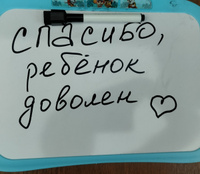 спасибо,
ребёнок
доволен ♡